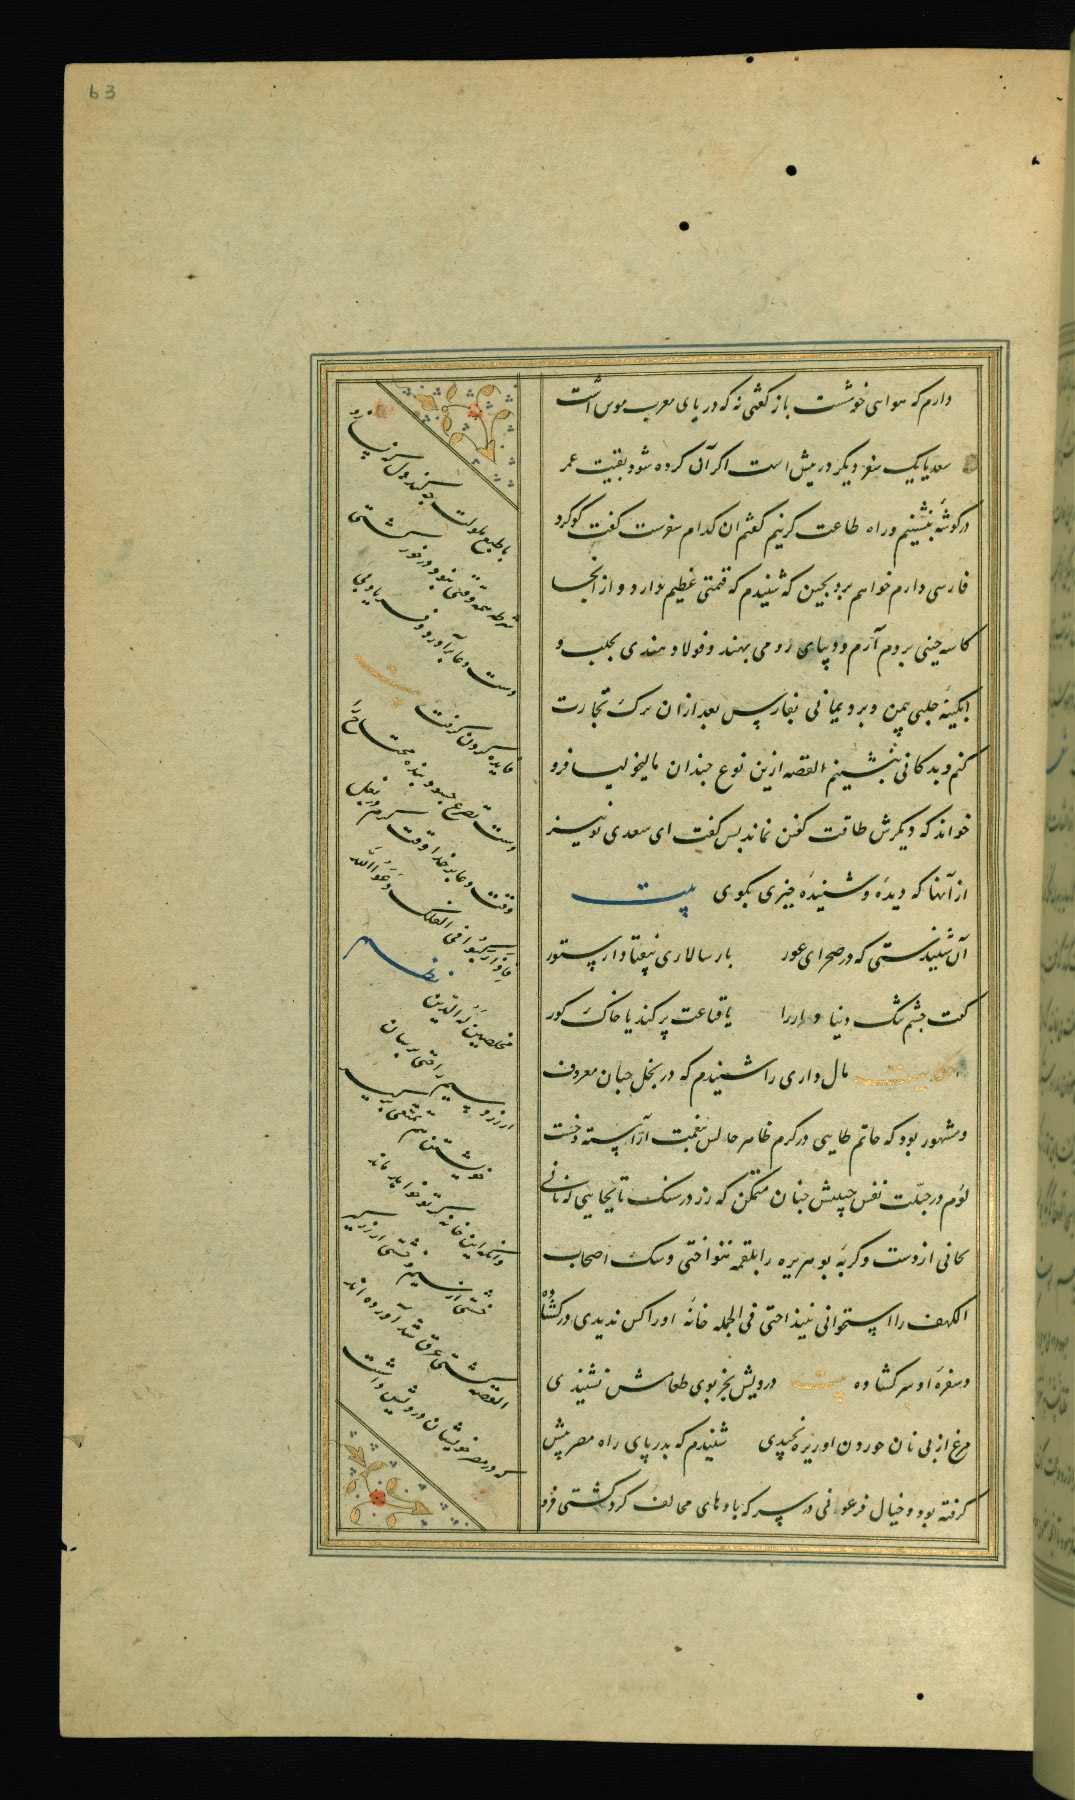 63
دارم که هوای خوشست باز گفتی نه که دریای مغرب موس است
سعدیا یک سفر دیگر در پیش است اگر آن کرده شود بقیت عمر
در گوشهٔ بنشینم و راه طاعت گزینم گفتم ان کدام سفرست گفت گوگرد
فارسی دارم خواهم برد بچین که شنیدم که قیمتی عظیم دارد و از انجا
کاسه چینی بروم آرم و دیبای رومی بهند و فولاد هندی بحلب و
ابگینهٔ حلبی بیمن و برد یمانی بفارس بعد ازان ترک تجارت
کنم و بدکانی بنشینم القصه ازین نوع چندان مالیخولیا فرو
خواند که دیگرش طاقت گفتن نماند پس گفت ای سعدی تو نیز
از آنها که دیدهٔ و شنیدهٔ چیزی بگوی بیت
آن شنیدستی که در صحرای غور بار سالاری بیفتاد از ستور
گفت چشم تنگ دنیا دار را یا قناعت پر کند یا خاک گور
حکایت مال داری را شنیدم که در بخل چنان معروف
و مشهور بود که حاتم طایی در کرم ظاهر حالش بنعمت آراسته و خست
لؤم در جبلت نفس چپیش چنان متمکن که زر در سنک تا بجایی که نانی
بجانی از دست و گربهٔ بو هریره را بلقمه ننواختی و سک اصحاب
الکهف را استخوانی نینداختی فی الجمله خانهٔ او را کس ندیدی در گشاده
و سفرهٔ او سر گشاده بیت درویش بجز بوی طعامش نشنیدی
مرغ از پی نان خوردن او ریزه نچیدی شنیدم که بدریای راه مصر پیش
گرفته بود و خیال فرعونی در سر که بادهای مخالف گرد کشتی فرو
با طبع ملولت چه کند دل که نسازد
شرطه همه وقتی نبود در خور کشتی
دست دعا برآورد و فریاد بی
فایده کردن گرفت بیت
دست تضرع چه سود بنده محتاج را
وقت دعا بر خدا وقت کرم در بغل
فاذا رکبوا فی الفلک دعوا الله
مخلصین له الدین نظم
از زر و سیم راحتی برسان
خویشتن هم تمتعی برگیر
وانگه این خانه کز تو خواهد ماند
خشتی از سیم و خشتی از زر گیر
القصه کشتی غرق شد آورده اند
که در مصر خویشان درویش داشت